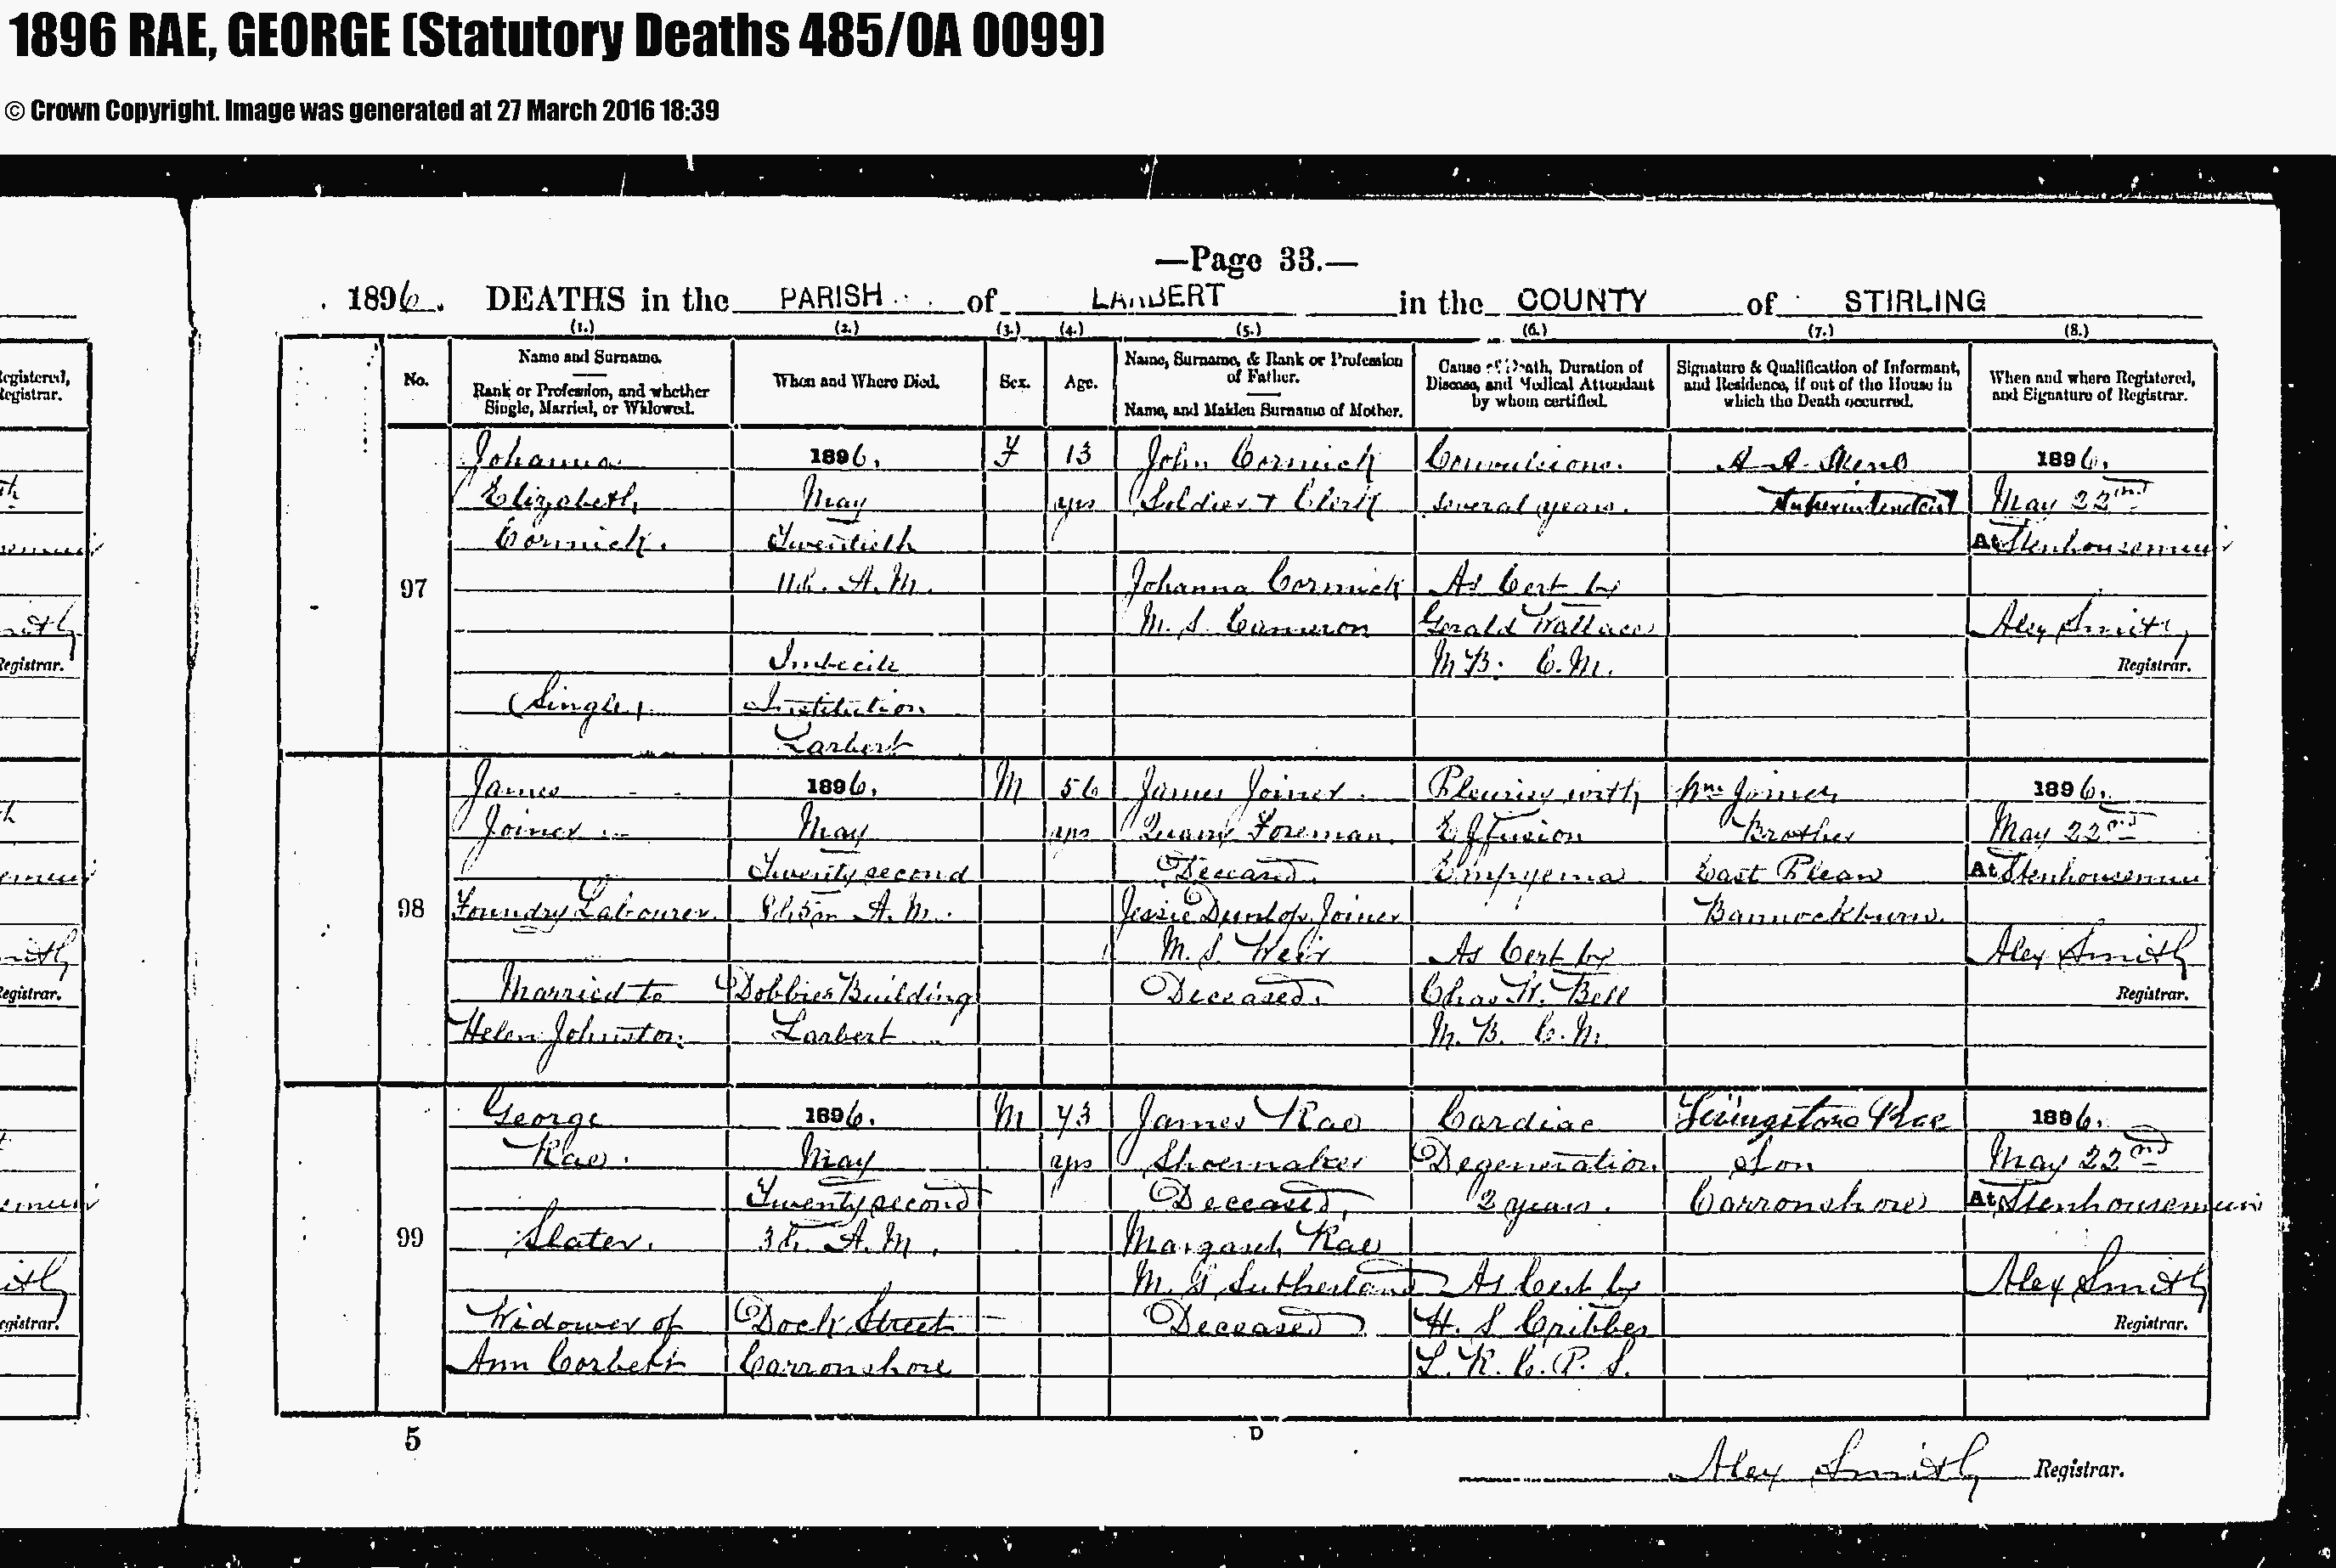 1896 RAE, GEORGE (Statutory Deaths 485/0A 0099)
© Crown Copyright. Image was generated at 27 March 2016 18:39
—Page 33.—
1896. DEATHS in the PARISH of LARBERT in the COUNTY of STIRLING
(1.) (2.) (3.) (4.) (5.) (6.) (7.) (8.)
No.
Name and Surname.
Rank or Profession, and whether
Single, Married, or Widowed.
When and Where Died.
Sex.
Age.
Name, Surname, & Rank or Profession
of Father.
Name, and Maiden Surname of Mother.
Cause of Death, Duration of
Disease, and Medical Attendant
by whom certified.
Signature & Qualification of Informant,
and Residence, if out of the House in
which the Death occurred.
When and where Registered,
and Signature of Registrar.
97
Johanna
Elizabeth
Cormick.
(Single)
1896.
May
Twentieth
11h. A.M.
Imbecile
Institution
Larbert
F
13
yrs
John Cormick
Soldier & Clerk
Johanna Cormick
M. S. Cameron
Convulsions.
several years.
As Cert by
Gerald Wallace
M.B. C.M.
A. A. Skene
Superintendent
1896.
May 22nd
At Stenhousemuir
Alex Smith
Registrar.
98
James
Joiner
Foundry Labourer
Married to
Helen Johnston
1896.
May
Twenty second
A.M.
Dobbies Building
Larbert
M
56
yrs
James Joiner
Quarry Foreman
Deceased.
Jessie Dunlop Joiner
M. S. Weir
Deceased.
Pleurisy with
Effusion
Empyema
As Cert by
Chas W. Bell
M. B. C. M.
Wm Joiner
Brother
East Plean
Bannockburn.
1896.
May 22nd
At Stenhousemuir
Alex Smith
Registrar.
99
George
Rae.
Slater.
Widower of
Ann Corbett
1896.
May
Twenty second
3h. A.M.
Dock Street
Carronshore
M
73
yrs
James Rae
Shoemaker
Deceased.
Margaret Rae
M. S. Sutherland
Deceased
Cardiac
Degeneration
2 years.
As Cert by
H. S. Cribbes
L. R. C. P. S.
Livingstone Rae
Son
Carronshore
1896.
May 22nd
At Stenhousemuir
Alex Smith
Registrar.
5
D
Alex Smith Registrar.